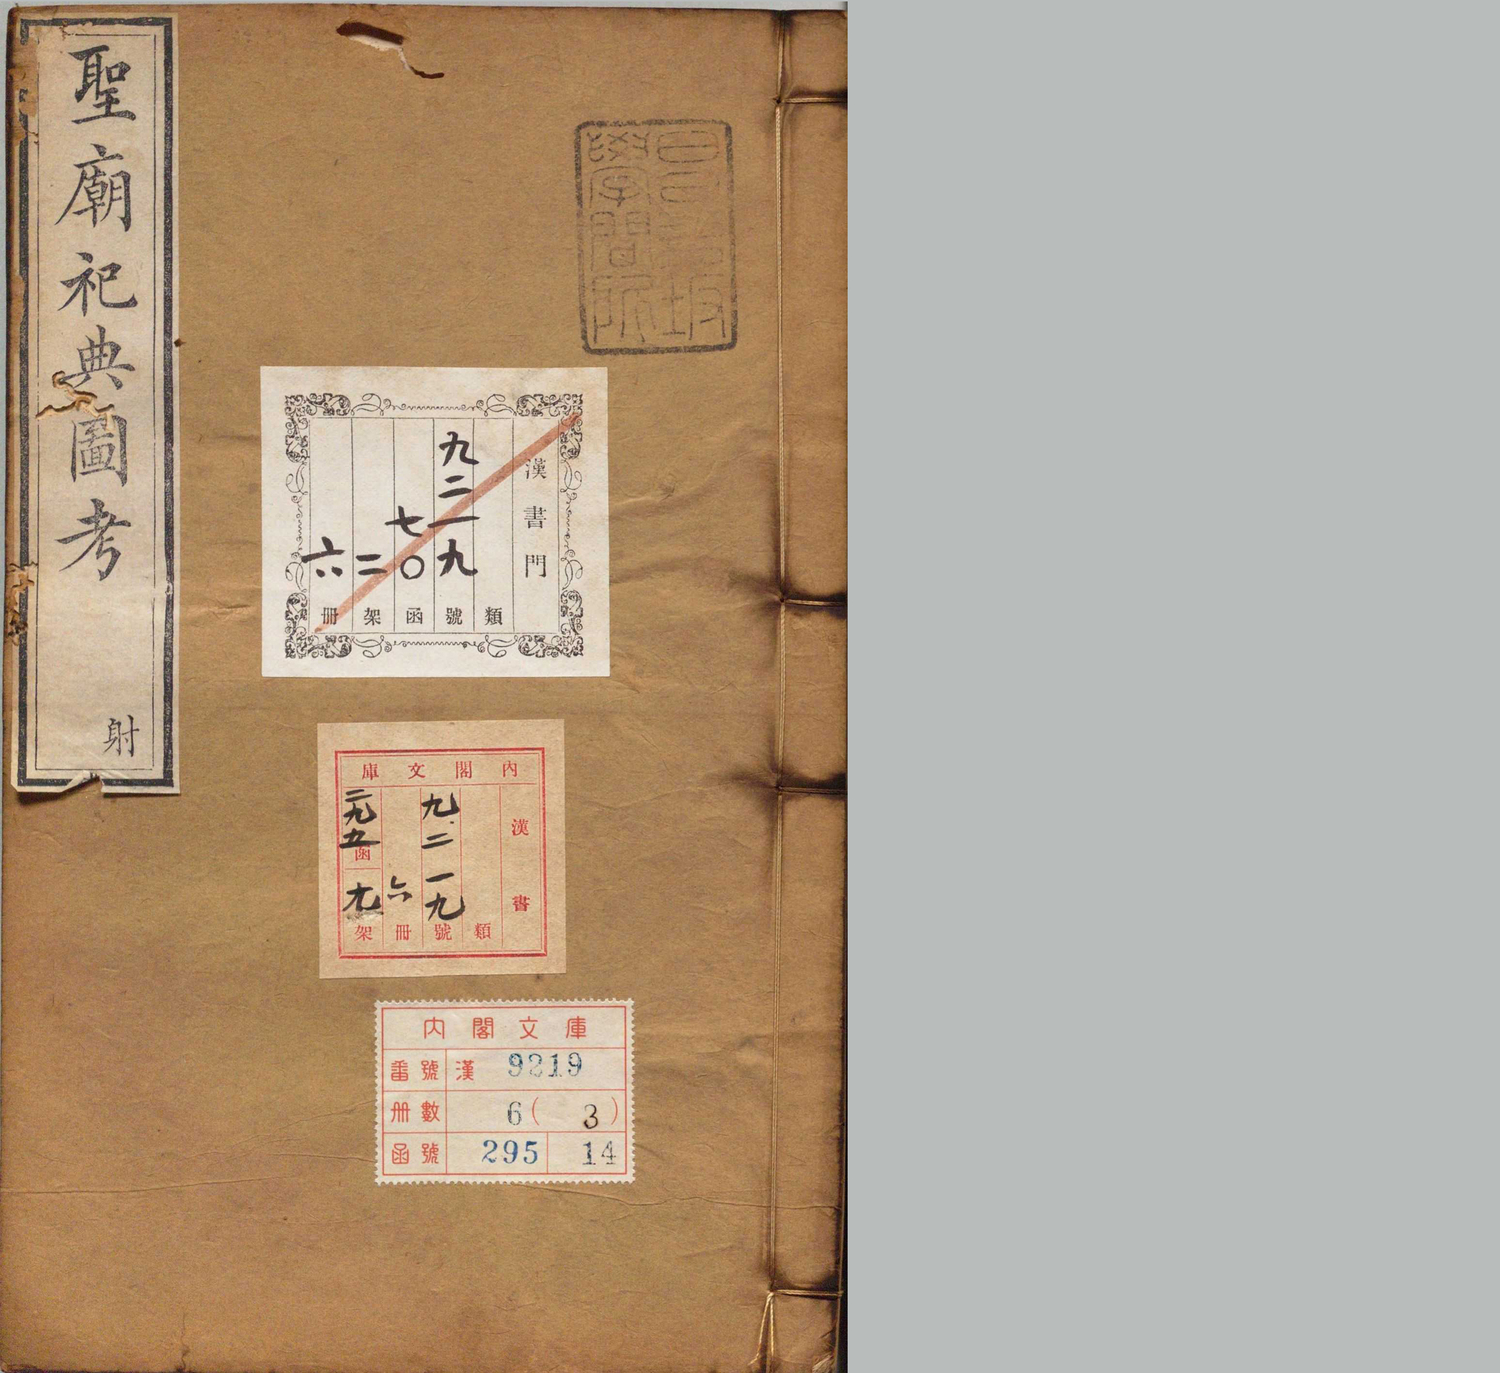 聖廟祀典圖考
射
昌平坂
學問所
漢書門
類
九二一九號
七〇函
二架
六冊
內閣文庫
漢書
類
九二一九號
六冊
二九五函
九架
内閣文庫
番號 漢 9219
冊數 6 ( 3 )
函號 295 14